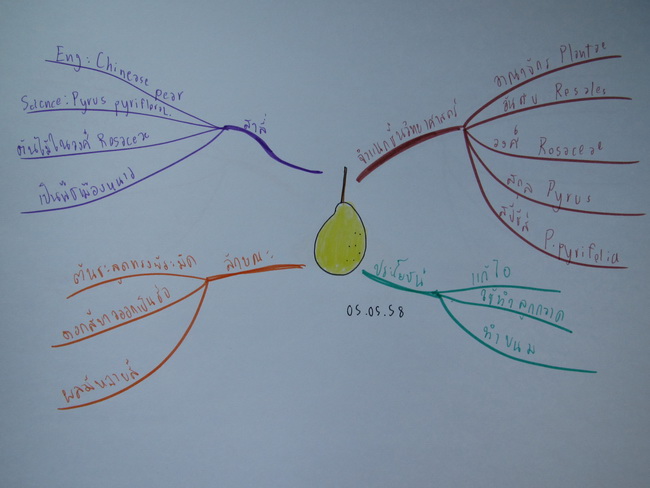 Eng: Chinease pear
Science: Pyrus pyrifloria.
ต้นไม้ในวงศ์ Rosaceae
เป็นพืชเมืองหนาว
สาลี่
จำแนกชั้นวิทยาศาสตร์
อาณาจักร Plantae
อันดับ Rosales
วงศ์ Rosaceae
สกุล Pyrus
สปีชีส์ P. pyrifolia
ลักษณะ
ดอกสีขาวออกเป็นช่อ
ผลมีหลายสี
ประโยชน์
แก้ไอ
ใช้ทำลูกกวาด
ทำขนม
05.05.58